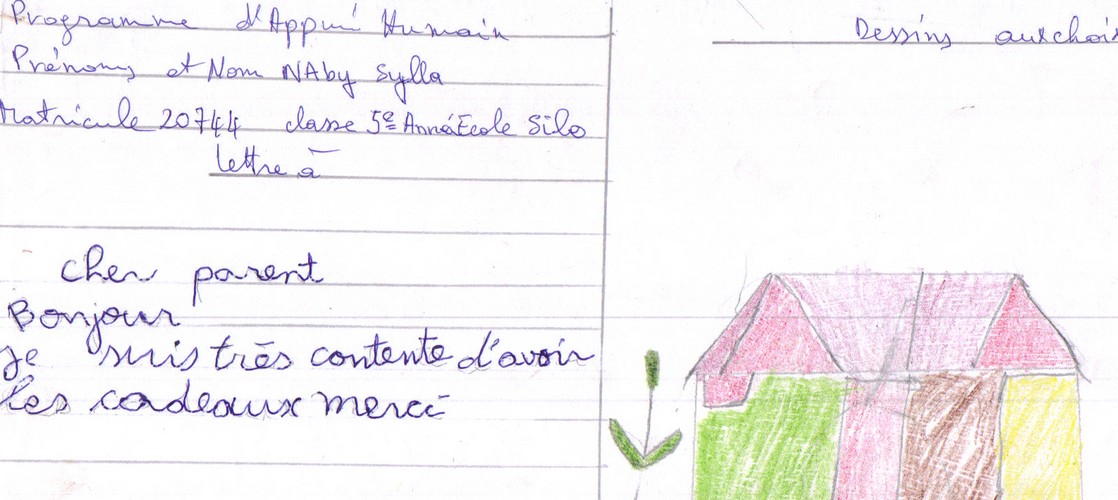 Programme d'Appui Humain
Prénoms et Nom NAby Sylla
Matricule 20744 classe 5e Année Ecole Silo
lettre à
Dessins au choix
cher parent
Bonjour
je suis très contente d'avoir
les cadeaux merci